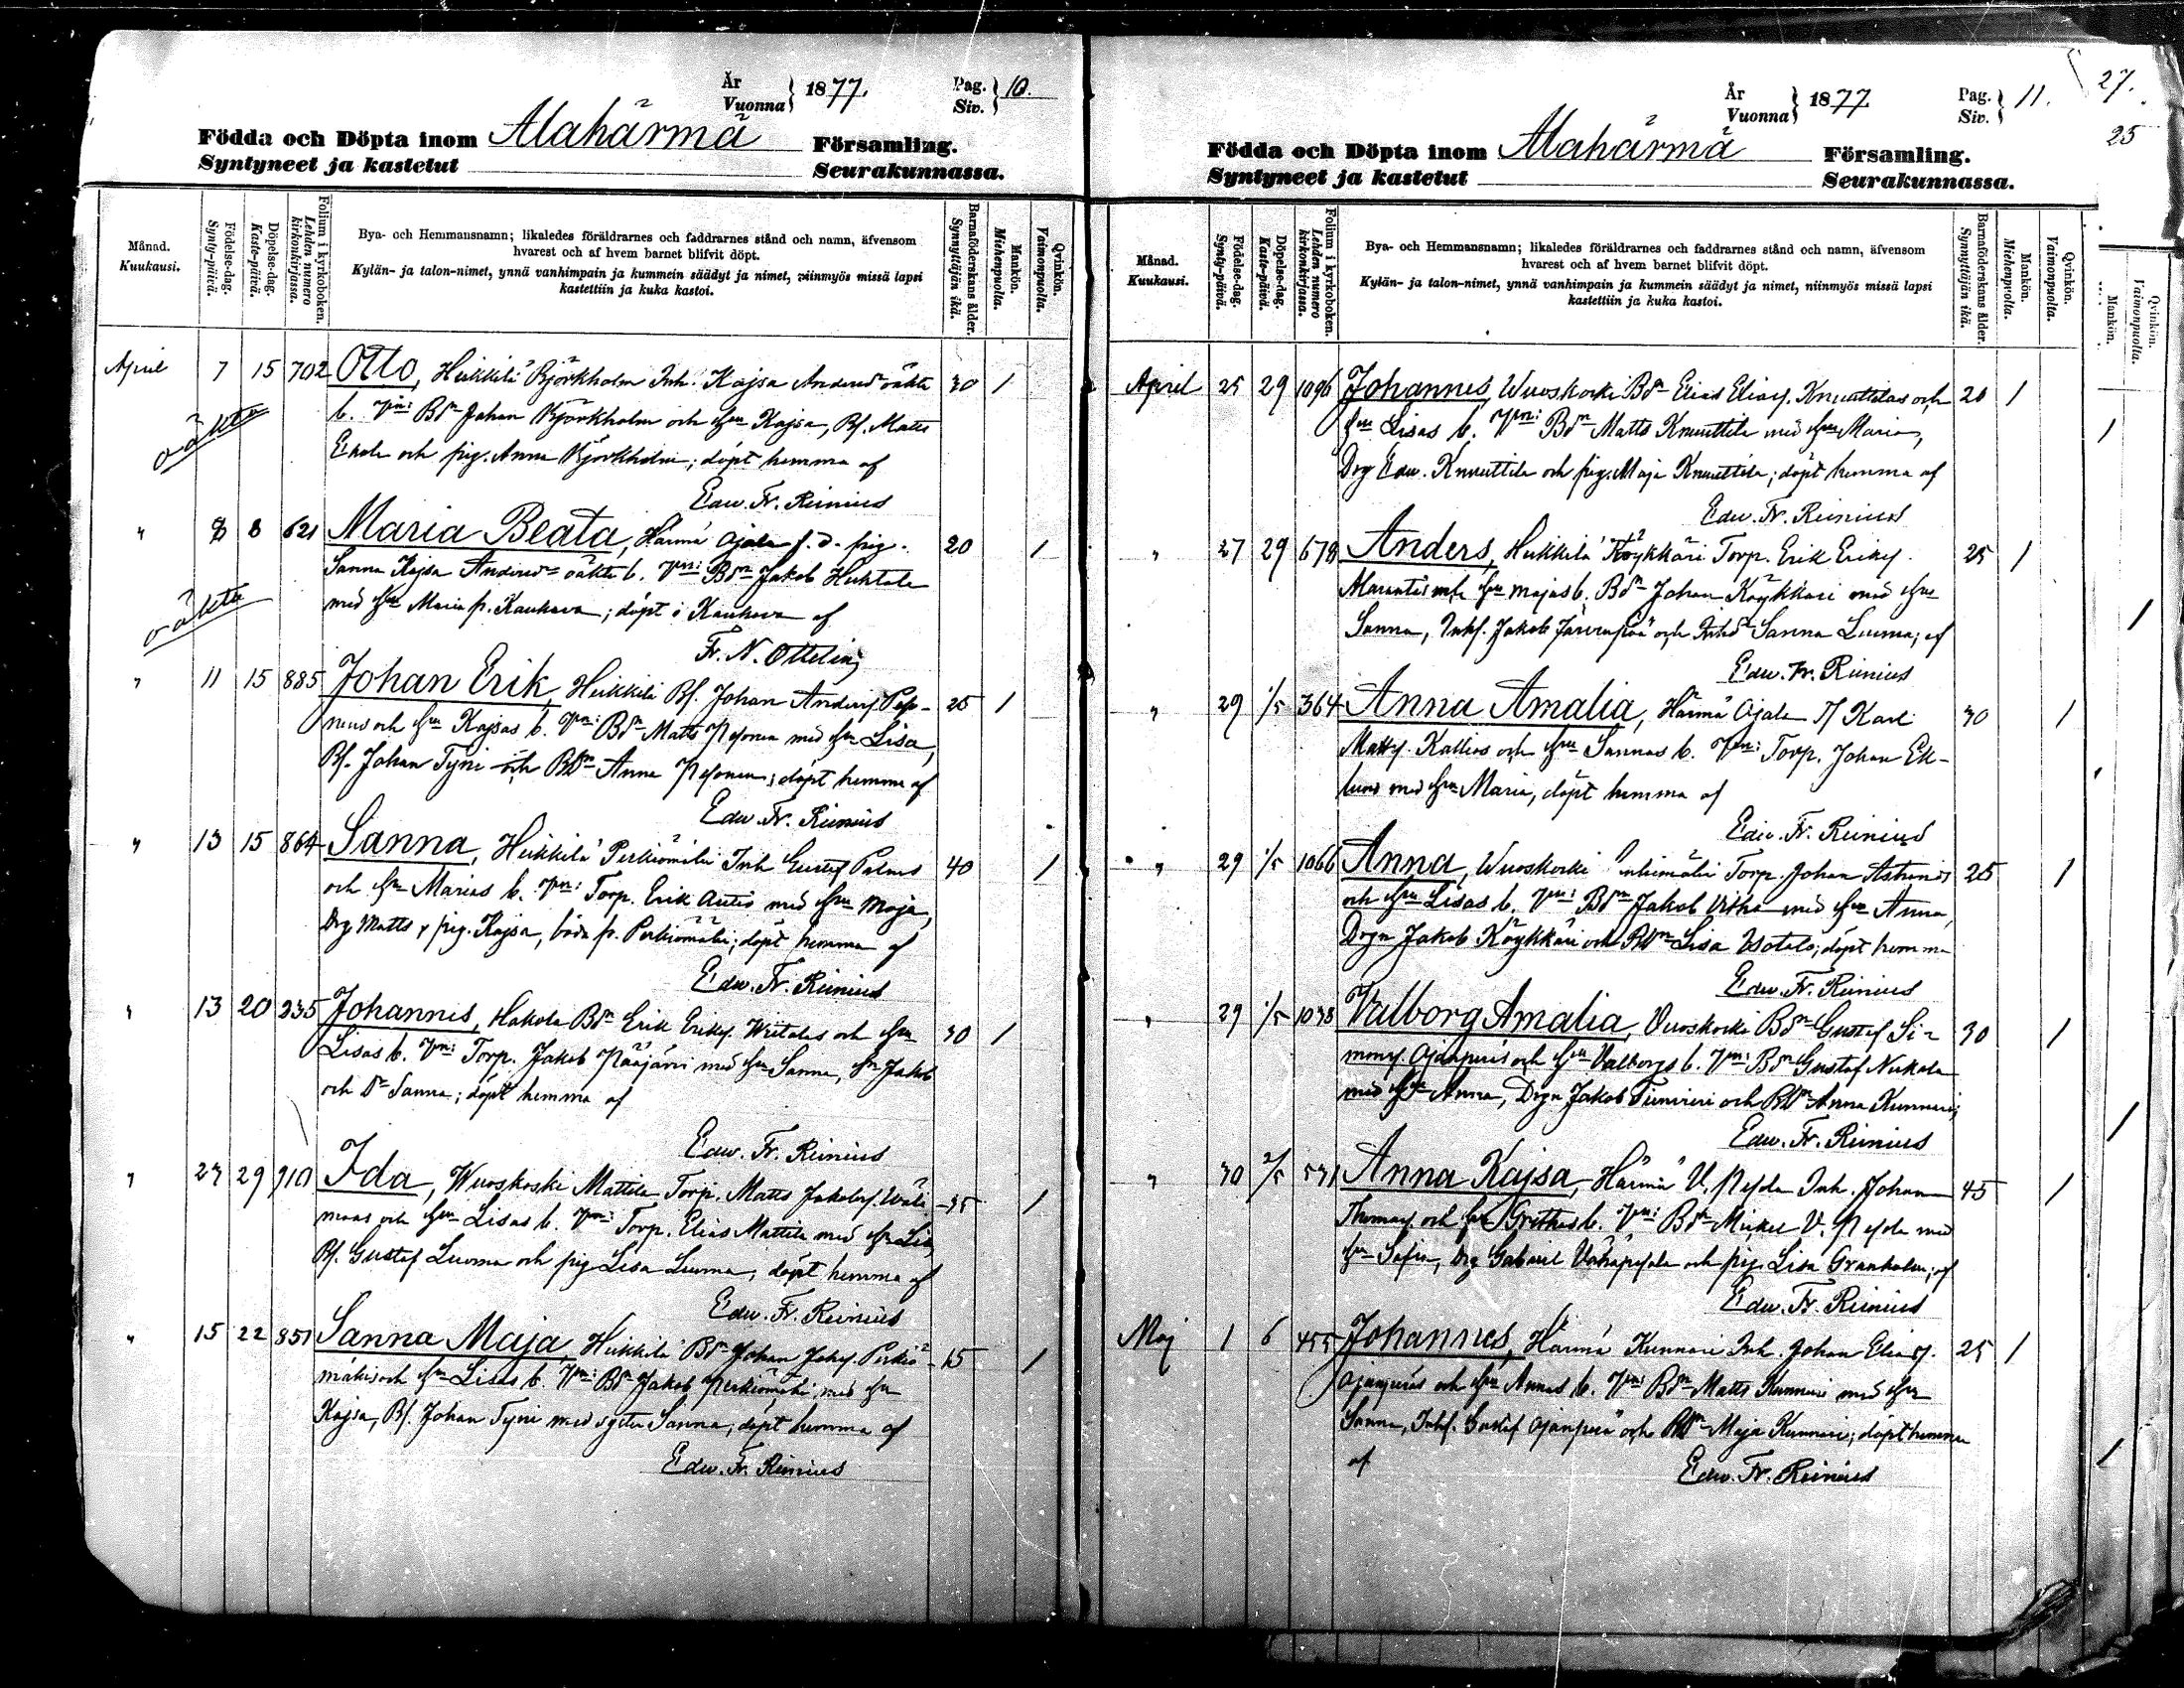 År
Vuonna } 1877. Pag.
Siv. } 10.
Födda och Döpta inom Alahärmä Församling.
Syntyneet ja kastetut Seurakunnassa.
Månad.
Kuukausi.
Födelse-dag.
Synty-päivä.
Döpelse-dag.
Kaste-päivä.
Folium i kyrkoboken.
Lehden numero
kirkonkirjassa.
Bya- och Hemmansnamn; likaledes föräldrarnes och faddrarnes stånd och namn, äfvensom
hvarest och af hvem barnet blifvit döpt.
Kylän- ja talon-nimet, ynnä vanhimpain ja kummein säädyt ja nimet, niinmyös missä lapsi
kastettiin ja kuka kastoi.
Barnaföderskans ålder.
Synnyttäjän ikä.
Mankön.
Miehenpuolta.
Qvinkön.
Vaimonpuolta.
April 7 15 702 Otto, Heikkilä Björkholm Inh. Kajsa Andersdr oäkta 30 1
b. Vni: Bdn Johan Björkholm och hu Kajsa, Bs. Matts
oäkta
och pig. Anna Björkholm; döpt hemma af
Edw. Fr. Reinius
" 8 8 621 Maria Beata, Härmä Ojala f. d. pig. 20 1
Sanna Kajsa Andersdr oäkta b. Vni: Bdn Jakob Huhtala
oäkta
med hu Maria fr. Kauhava; döpt i Kauhava af
Fr. N. Ottelin
" 11 15 885 Johan Erik, Heikkilä Bs. Johan Anders. 25 1
och hu Kajsas b. Vni: Bdn Matts Pesonen med hu Lisa,
Bs. Johan Tyni och Bdr Anna Pesonen; döpt hemma af
Edw. Fr. Reinius
" 13 15 864 Sanna, Heikkilä Perkiömäki Inh. Gustaf Palms 40 1
och hu Marias b. Vni: Torp. Erik Autio med hu Maja,
Drg Matts & pig. Kajsa, båda fr. Perkiömäki; döpt hemma af
Edw. Fr. Reinius
" 13 20 235 Johannes, Hakola Bdn Erik Eriks. Wiitalas och hu 30 1
Lisas b. Vni: Torp. Jakob Pääjärvi med hu Sanna, Jakob
och Dr Sanna; döpt hemma af
Edw. Fr. Reinius
" 23 29 910 Ida, Wuoskoski Mattila Torp. Matts Jakobs. Wäli- 35 1
maas och hu Lisas b. Vni: Torp. Elias Mattila med hu Lisa,
Bs. Gustaf Luoma och pig Lisa Luoma; döpt hemma af
Edw. Fr. Reinius
" 15 22 851 Sanna Maja, Heikkilä Bdn Johan Johs. Perkiö- 15 1
mäkis och hu Lisas b. Vni: Bdn Jakob Perkiömäki med hu
Kajsa, Bs. Johan Tyni med syster Sanna; döpt hemma af
Edw. Fr. Reinius
År
Vuonna } 1877 Pag.
Siv. } 11.
27.
25
Födda och Döpta inom Alahärmä Församling.
Syntyneet ja kastetut Seurakunnassa.
Månad.
Kuukausi.
Födelse-dag.
Synty-päivä.
Döpelse-dag.
Kaste-päivä.
Folium i kyrkoboken.
Lehden numero
kirkonkirjassa.
Bya- och Hemmansnamn; likaledes föräldrarnes och faddrarnes stånd och namn, äfvensom
hvarest och af hvem barnet blifvit döpt.
Kylän- ja talon-nimet, ynnä vanhimpain ja kummein säädyt ja nimet, niinmyös missä lapsi
kastettiin ja kuka kastoi.
Barnaföderskans ålder.
Synnyttäjän ikä.
Mankön.
Miehenpuolta.
Qvinkön.
Vaimonpuolta.
Mankön.
Qvinkön.
Vaimonpuolta.
April 25 29 1096 Johannes, Wuoskoski Bdn Elias Elias. Knuuttilas och 20 1
hu Lisas b. Vni: Bdn Matts Knuuttila med hu Maria,
Drg Edw. Knuuttila och pig. Maja Knuuttila; döpt hemma af
Edw. Fr. Reinius
" 27 29 678 Anders, Heikkilä Köykkäri Torp. Erik Eriks. 25 1
hu Majas b. Bdn Johan Köykkäri med hu
Sanna, Inhs. Jakob Järvenpää och Inhdr Sanna Luoma; af
Edw. Fr. Reinius
" 29 1/5 364 Anna Amalia, Härmä Ojala Karl 30 1
Matts. Kallios och hu Sannas b. Vni: Torp. Johan Ek-
lund med hu Maria, döpt hemma af
Edw. Fr. Reinius
" 29 1/5 1066 Anna, Wuoskoski Torp. Johan 25 1
och hu Lisas b. Vni: Bdn Jakob med hu Anna,
Drgn Jakob Köykkäri och Bdr Lisa Isotalo; döpt hemma
Edw. Fr. Reinius
" 29 1/5 1038 Valborg Amalia, Wuoskoski Bdn Gustaf Si- 30 1
mons. Ojanperäs och hu Valborgs b. Vni: Bdn Gustaf Niskala
med hu Anna, Drgn Jakob och Bdr Anna Kunnari;
Edw. Fr. Reinius
" 30 2/5 531 Anna Kajsa, Härmä V. Pesola Inh. Johan 45 1
Thomas. och hu Grethas b. Vni: Bdn Mickel V. Pesola med
hu Sofia, drg Gabriel Vähäpesola och pig. Lisa Granholm; af
Edw. Fr. Reinius
Maj 1 6 455 Johannes, Härmä Kunnari Inh. Johan Elias. 25 1
Ojanperäs och hu Annas b. Vni: Bdn Matts Kunnari med hu
Sanna, Inhs. Gustaf Ojanperä och Bdr Maja Kunnari; döpt hemma
af Edw. Fr. Reinius